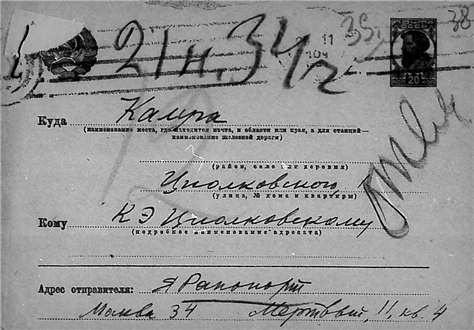 21 н. 34 1/2
11
38
20
Куда Калуга
(наименование места, где находится почта, и области или края, а для станций—
наименование железной дороги)
(район, село или деревня)
Циолковского 1
(улица, № дома и квартиры)
Кому К Э Циолковскому
(подробное наименование адресата)
Адрес отправителя: Я Рапопорт
Москва 34 Мертвый 11, кв. 4